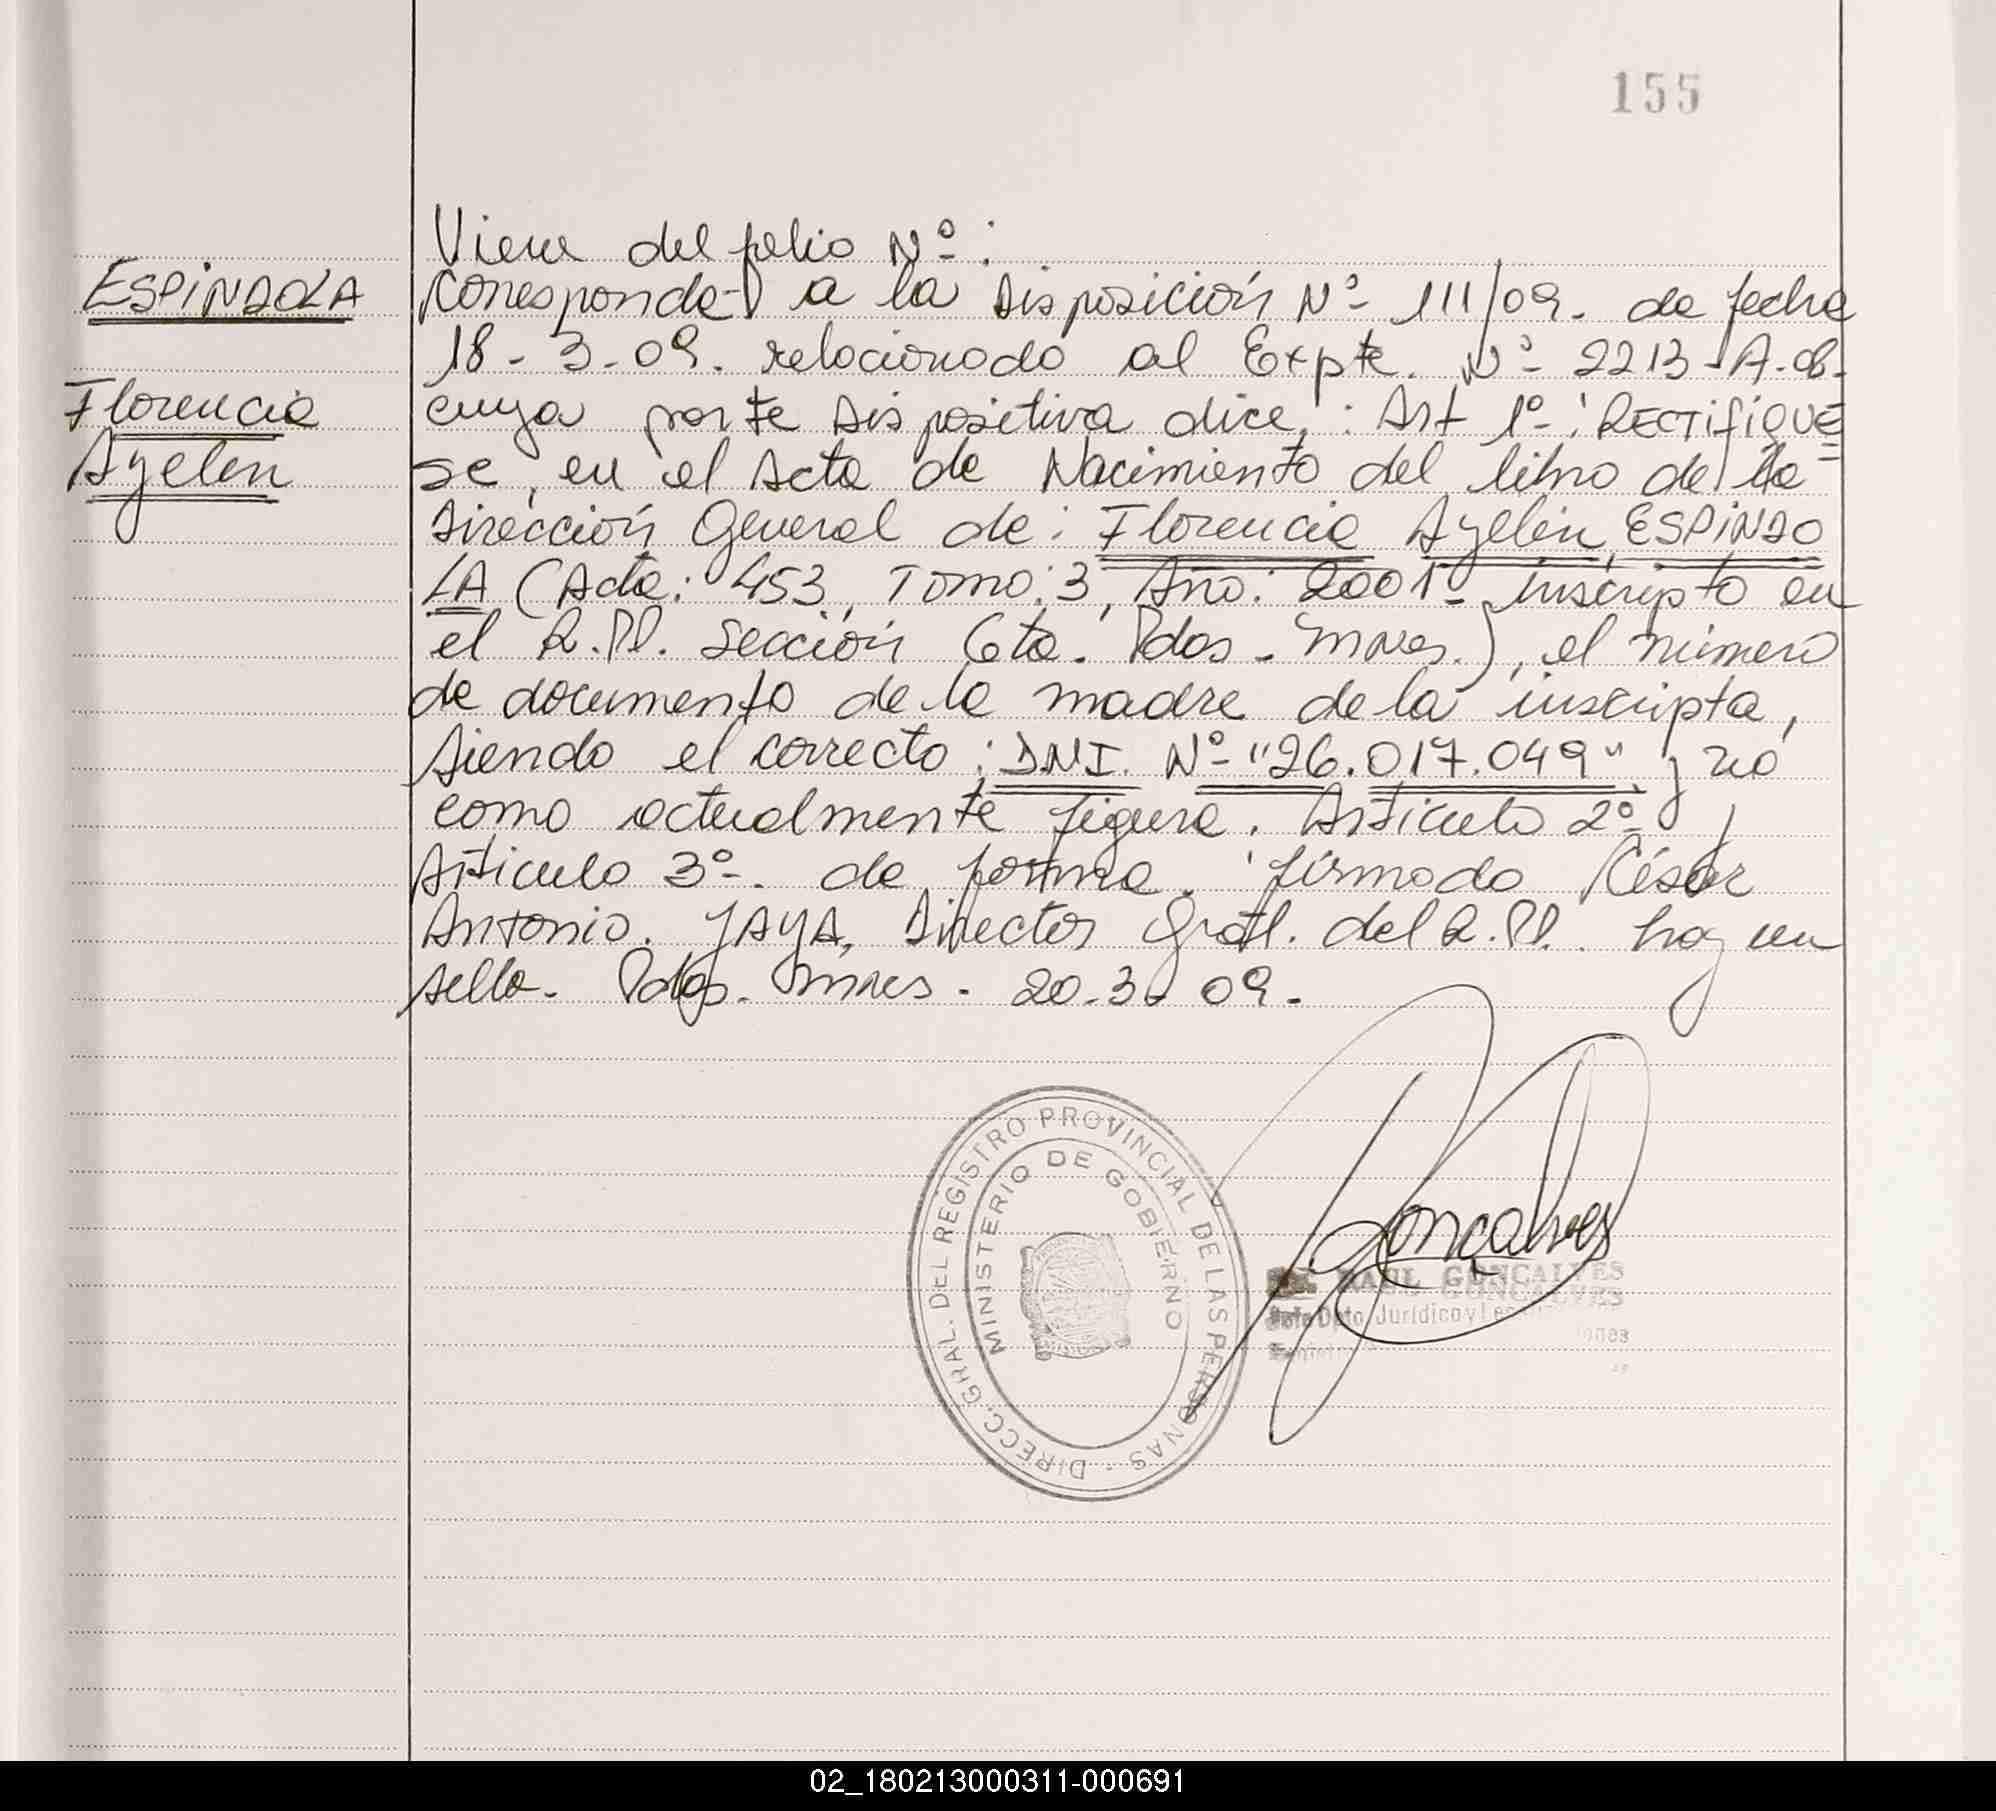 155
Viene del folio Nº:
ESPINDOLA
Corresponde a la Disposición Nº 111/09. de fecha
18-3-09. relacionado al Expte. Nº 2213-A-08-
Florencia
cuya parte Dispositiva dice: Art 1º: RECTIFIQUE
Ayelen
se, en el Acta de Nacimiento del libro de la
Dirección General de: Florencia Ayelén ESPINDO
LA (Acta: 453, Tomo: 3, Año: 2001- inscripto en
el R.PP. Sección 6ta. Pdas. Mnes.), el número
de documento de la madre de la inscripta,
siendo el correcto: DNI. Nº "26.017.049" y no
como actualmente figura. Artículo 2º y
Artículo 3º-. de forma. firmado César
Antonio. JAYA, Director Gral. del R.PP. hay un
sello- Pdas. Mnes- 20-3-09.
DIRECC. GRAL. DEL REGISTRO PROVINCIAL DE LAS PERSONAS -
MINISTERIO DE GOBIERNO
Gonçalves
RAUL GONÇALVES
Jefe Dpto. Jurídico y
02_180213000311-000691